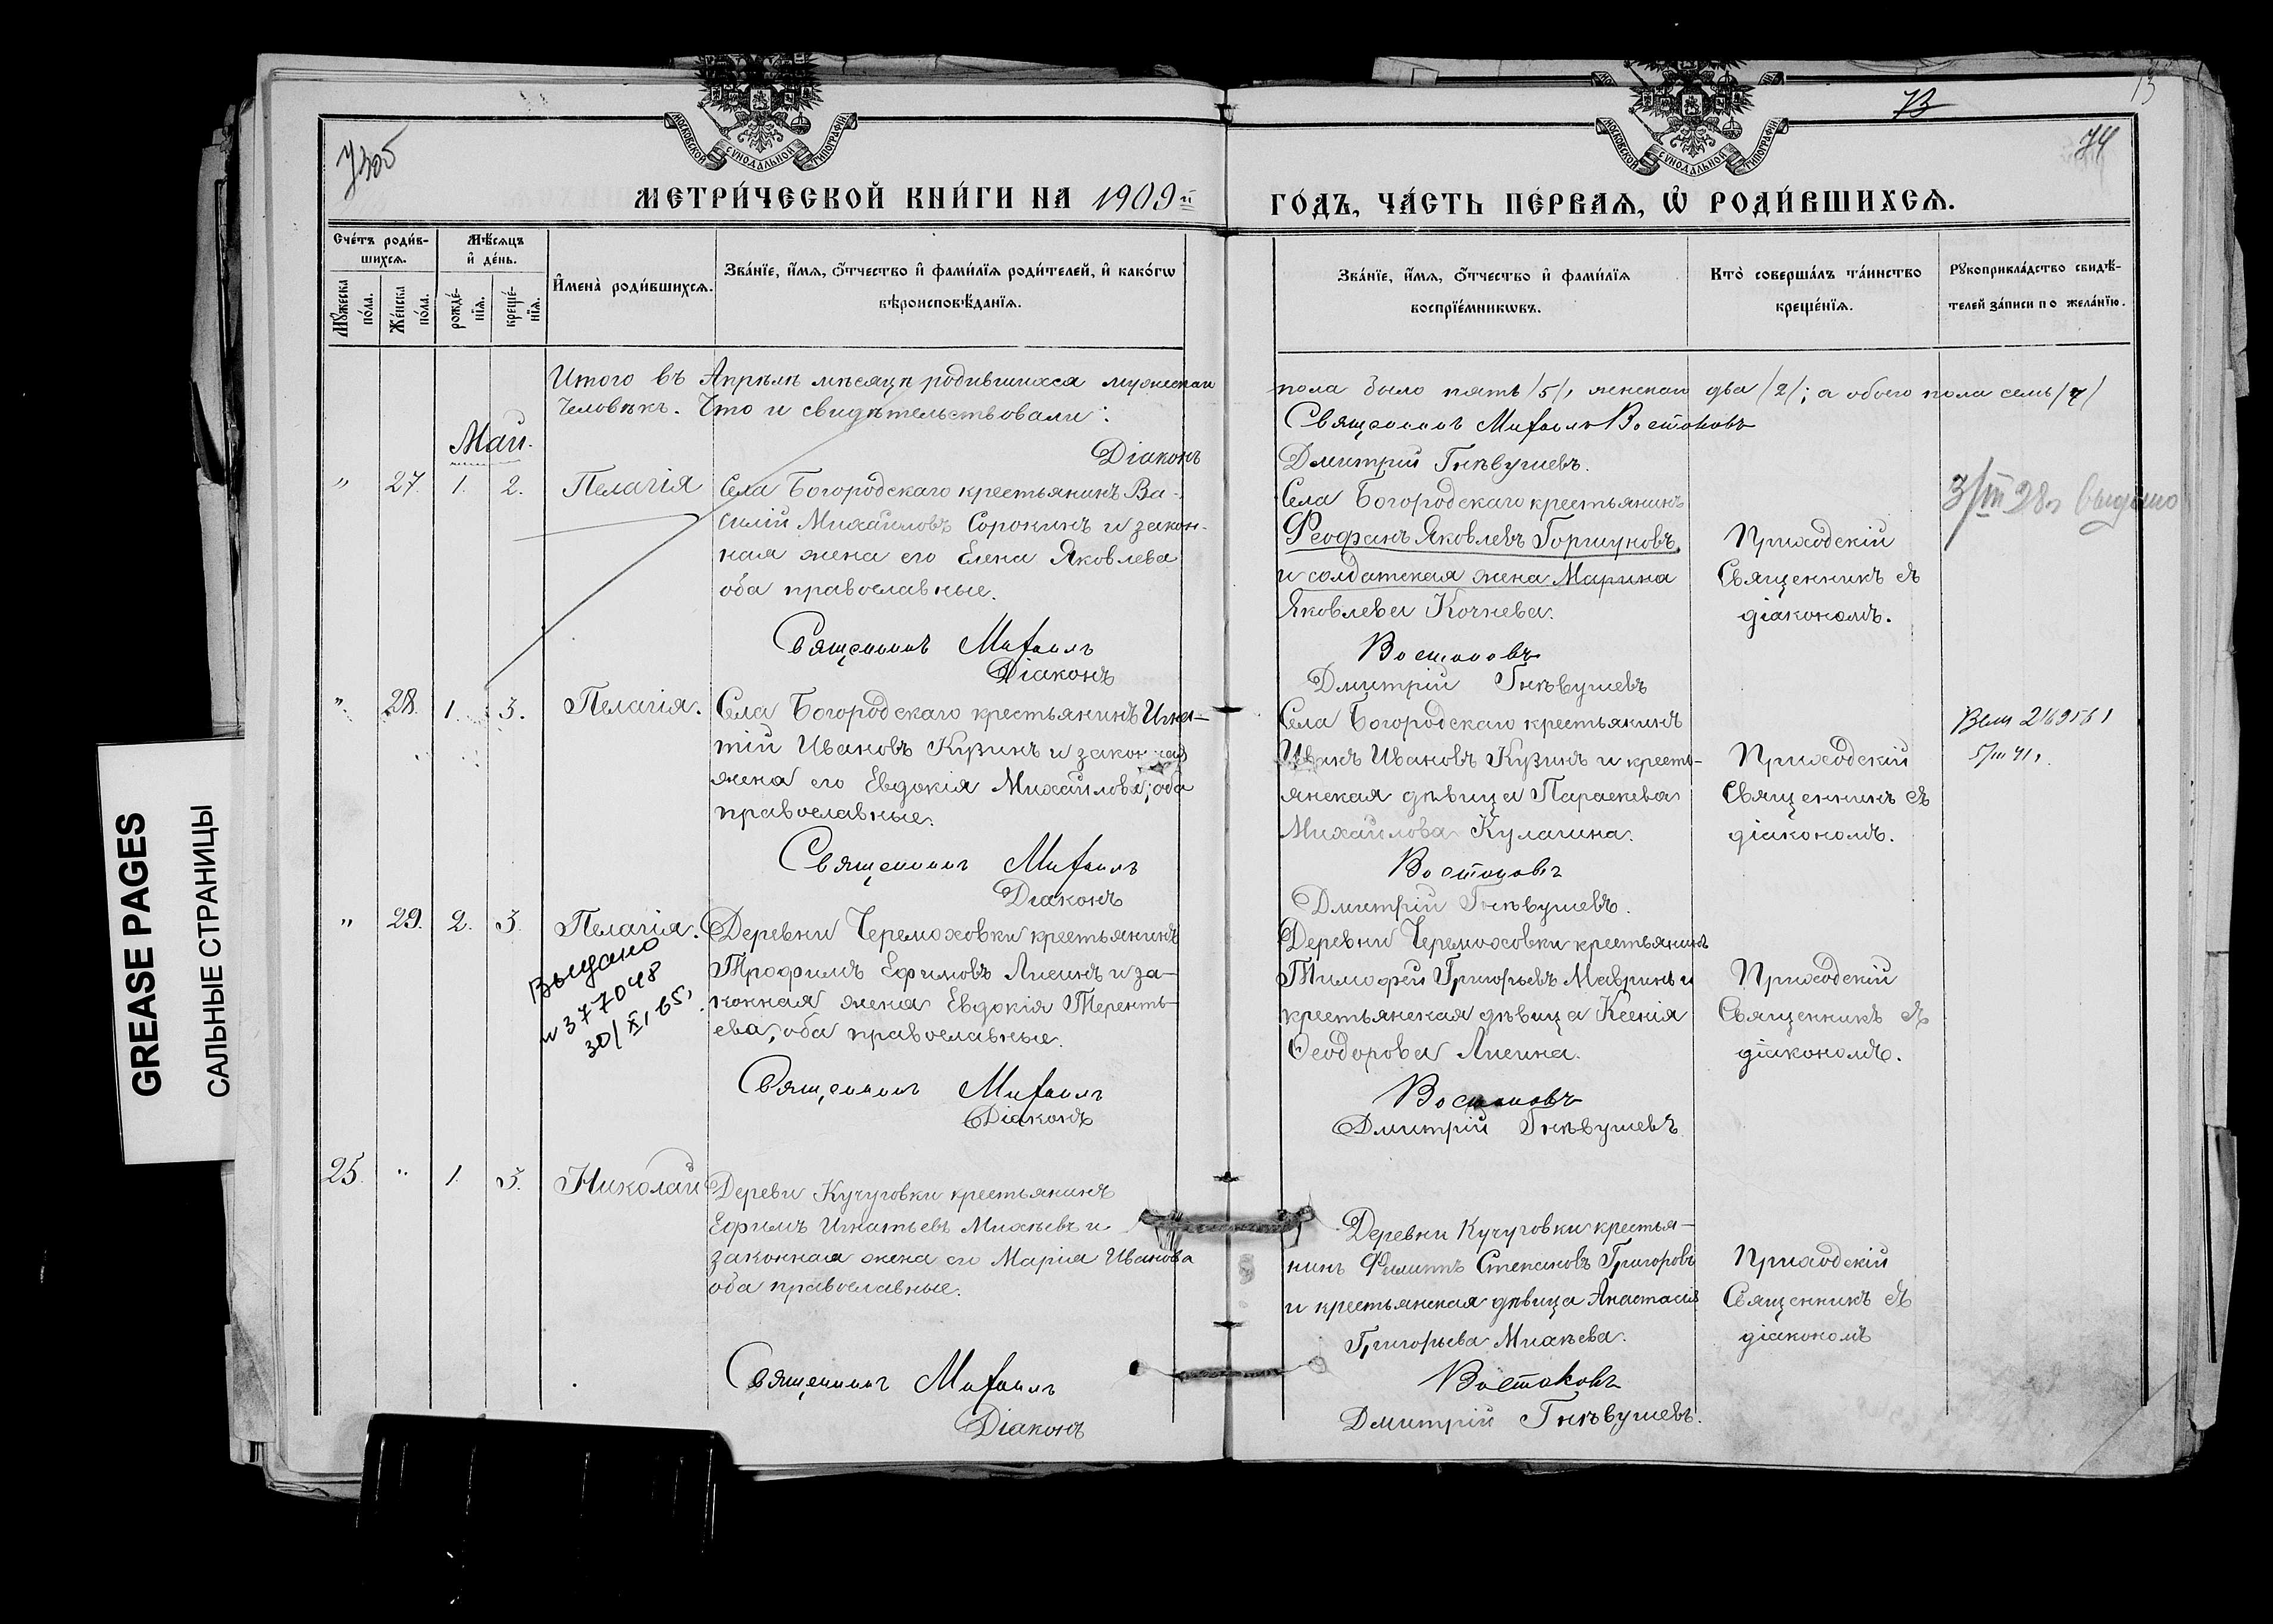 73
74
МОСКОВСКОЙ СѴНОДАЛЬНОЙ ТИПОГРАФІИ
МОСКОВСКОЙ СѴНОДАЛЬНОЙ ТИПОГРАФІИ
МЕТРИ́ЧЕСКОЙ КНИ́ГИ НА 1909й
ГО́ДЪ, ЧА́СТЬ ПЕ́РВАѦ, Ѡ҆ РОДИ́ВШИХСѦ.
Сче́тъ роди́в-
шихсѧ.
Мꙋ́жеска
по́ла.
Же́нска
по́ла.
Мѣ́сѧцъ
и҆ де́нь.
рожде́-
нїѧ.
креще́-
нїѧ.
И҆мена̀ роди́вшихсѧ.
Зва́нїе, и҆́мѧ, ѻ҆́тчество и҆ фами́лїѧ роди́телей, и҆ како́гѡ
вѣроисповѣ́данїѧ.
Зва́нїе, и҆́мѧ, ѻ҆́тчество и҆ фами́лїѧ
воспрїе́мникѡвъ.
Кто̀ соверша́лъ та́инство
креще́нїѧ.
Рꙋкоприкла́дство свидѣ́-
телей за́писи по жела́нїю.
Итого въ Апрѣлѣ мѣсяцѣ родившихся мужескаго
пола было пять /5/, женскаго два /2/; а обоего пола семь /7/
человѣкъ. Что и свидѣтельствовали:
Священникъ Михаилъ Востоковъ
Діаконъ
Дмитрій Гнѣвушевъ.
Май.
" 27. 1. 2. Пелагія
Села Богородскаго крестьянинъ Ва-
силій Михайловъ Сорокинъ и закон-
ная жена его Елена Яковлева
оба православные.
Села Богородскаго крестьянинъ
Феофанъ Яковлевъ Горшуновъ,
и солдатская жена Марина
Яковлева Кочнева.
Приходскій
Священникъ съ
діакономъ.
3/III 28 г выдано
Священникъ Михаилъ
Востоковъ
Діаконъ
Дмитрій Гнѣвушевъ
" 28. 1. 3. Пелагія.
Села Богородскаго крестьянинъ Игна-
тій Ивановъ Кузинъ и законная
жена его Евдокія Михайлова; оба
православные.
Села Богородскаго крестьянинъ
Иванъ Ивановъ Кузинъ и кресть-
янская дѣвица Параскева
Михайлова Кулагина.
Приходскій
Священникъ съ
діакономъ.
Священникъ Михаилъ
Востоковъ
Діаконъ
Дмитрій Гнѣвушевъ.
" 29. 2. 3. Пелагія.
Выдано
н 377048
30/XI, 65,
Деревни Черемоховки крестьянинъ
Трофимъ Ефимовъ Лисинъ и за-
конная жена Евдокія Теренть-
ева, оба православные.
Деревни Черемоховки крестьянинъ
Тимофей Григорьевъ Мавринъ и
крестьянская дѣвица Ксенія
Ѳеодорова Лисина.
Приходскій
Священникъ съ
діакономъ.
Священникъ Михаилъ
Востоковъ
Діаконъ
Дмитрій Гнѣвушевъ
25. " 1. 3. Николай
Деревн Кучуговки крестьянинъ
Ефимъ Игнатьевъ Михѣевъ и
законная жена его Марія Иванова
оба православные.
Деревни Кучуговки крестья-
нинъ Филиппъ Степановъ Григоровъ
и крестьянская дѣвица Анастасія
Григорьева Михѣева.
Приходскій
Священникъ съ
діакономъ
Священникъ Михаилъ
Востоковъ
Діаконъ
Дмитрій Гнѣвушевъ.
GREASE PAGES
САЛЬНЫЕ СТРАНИЦЫ